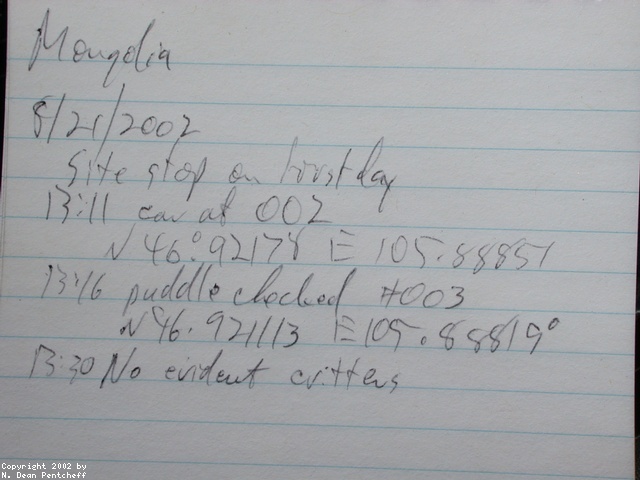 Mongolia
8/21/2002
Site stop on first day
13:11 car at 002
N 46.°92178 E 105.88851
13:16 puddle checked #003
N 46.921113 E105.88819°
13:30 No evident critters
Copyright 2002 by
N. Dean Pentcheff